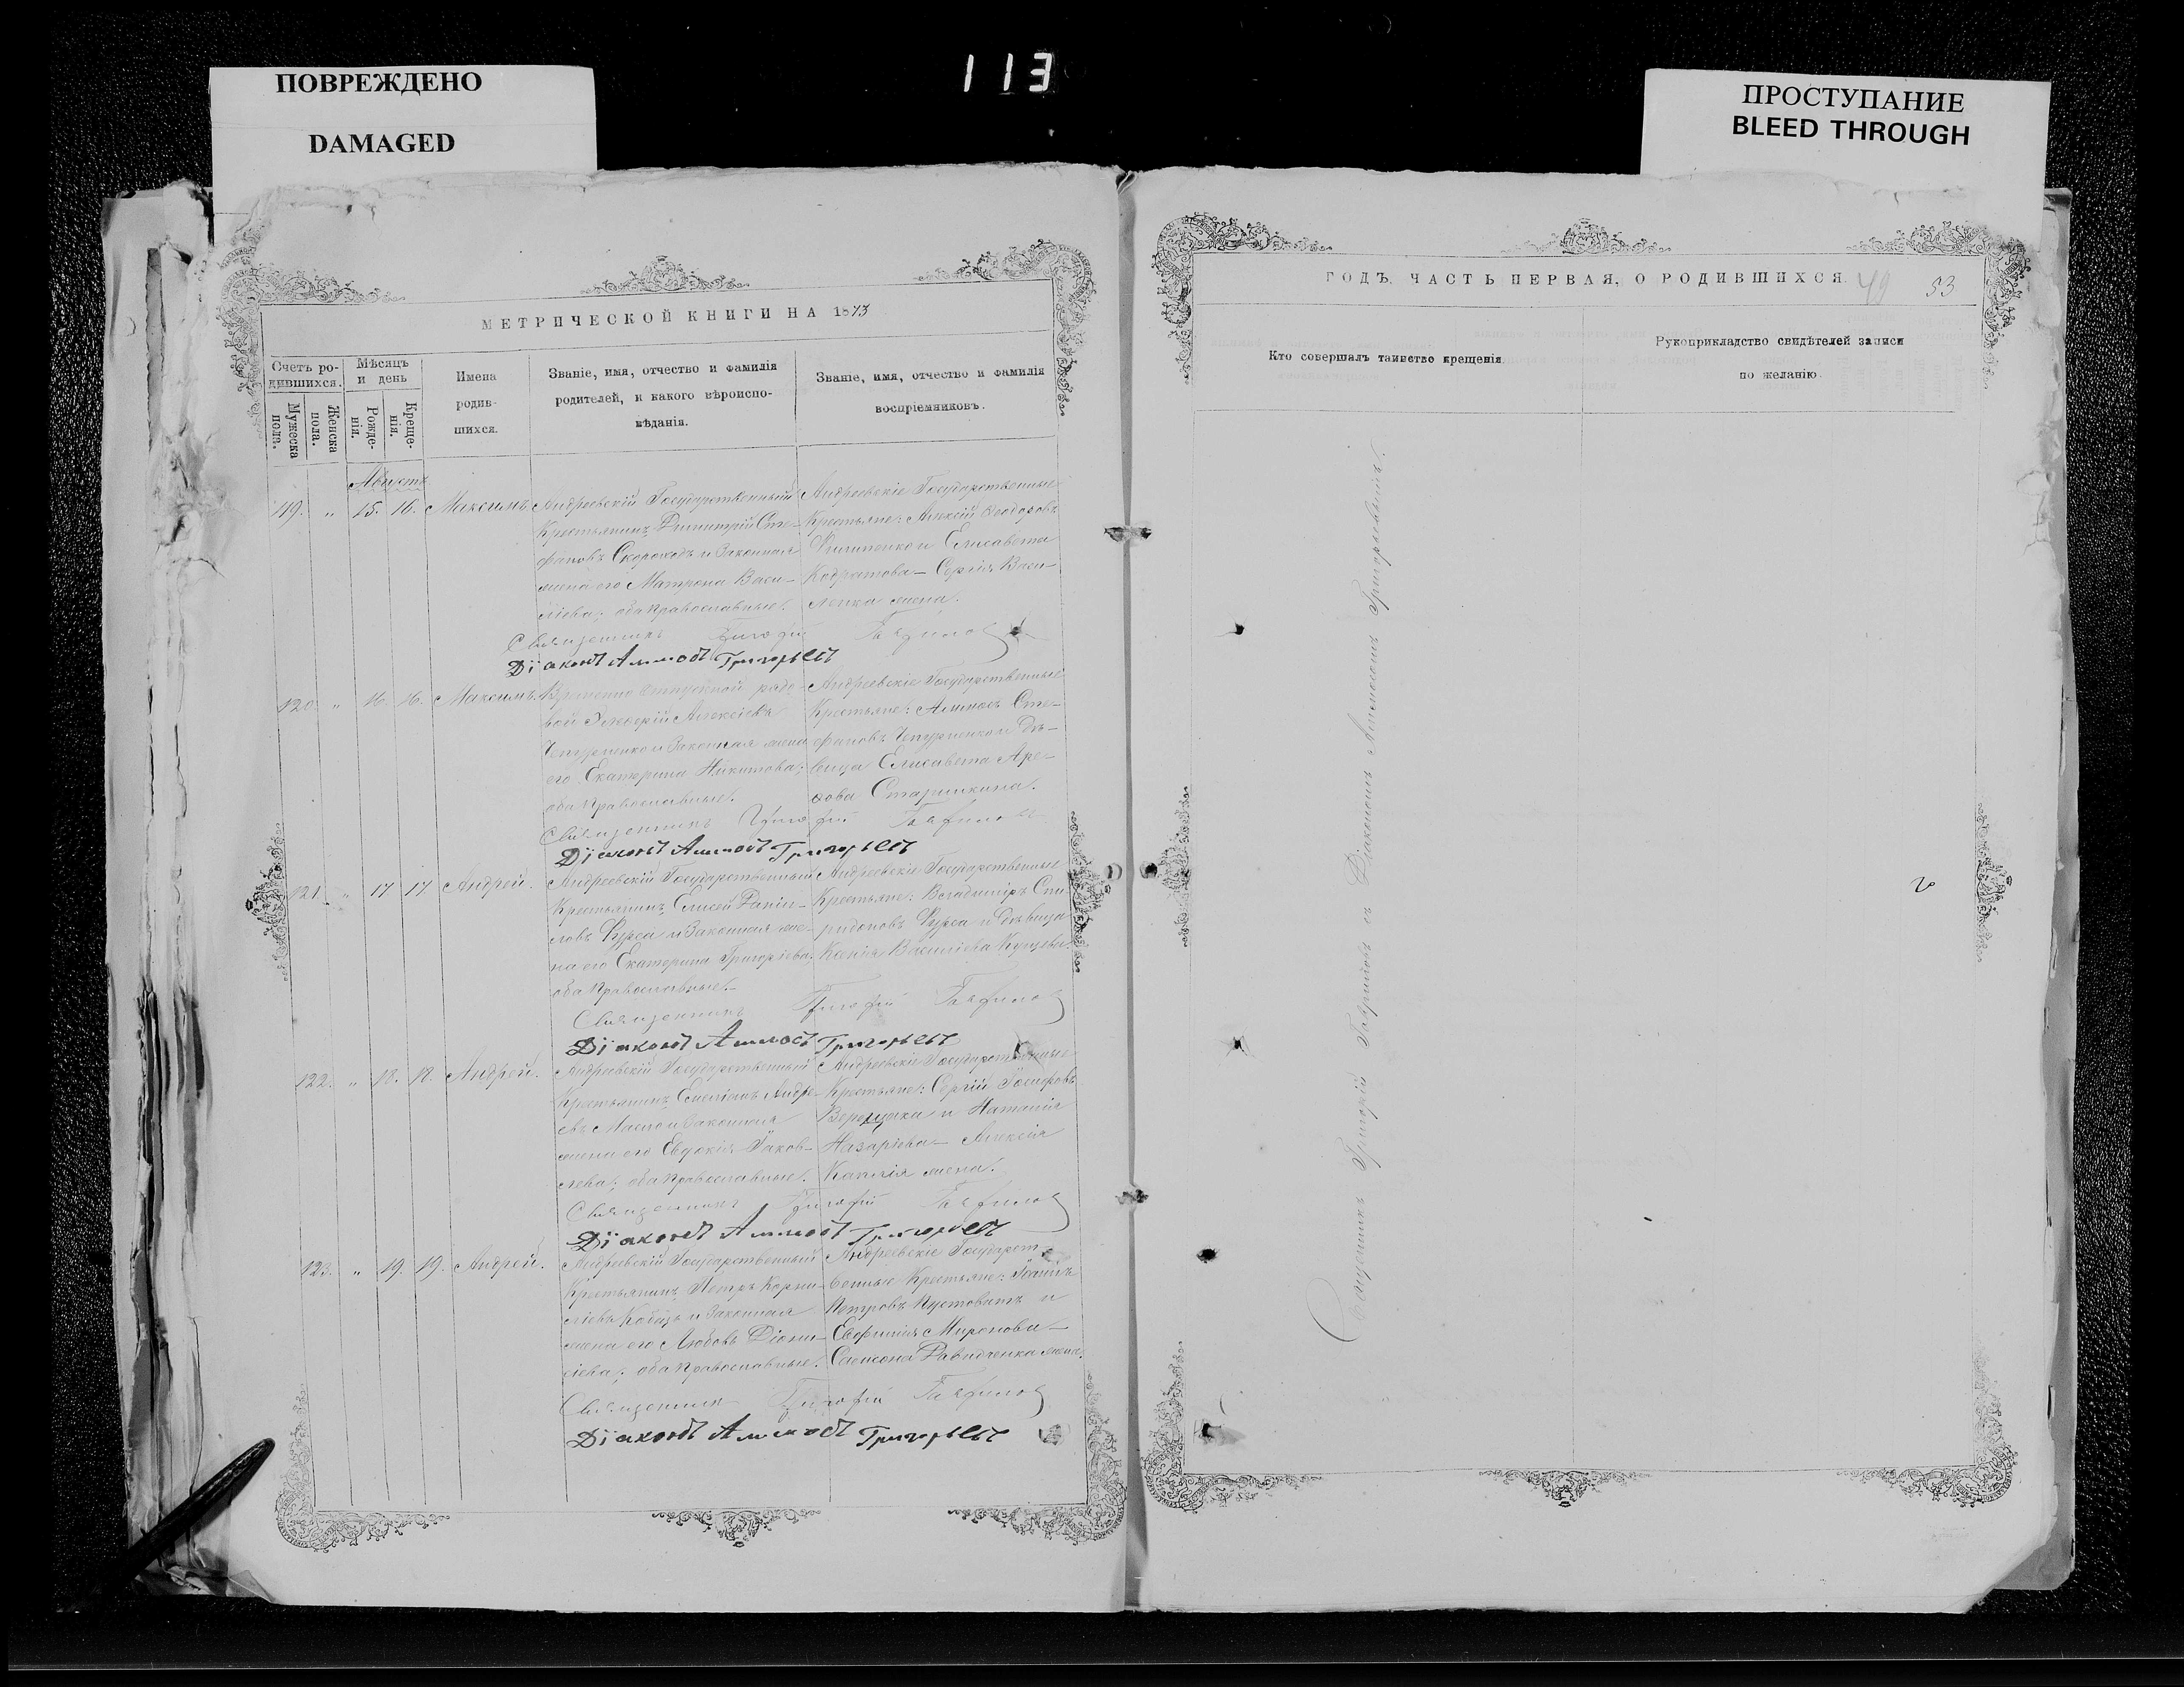 113
ПОВРЕЖДЕНО
DAMAGED
ПРОСТУПАНИЕ
BLEED THROUGH
МЕТРИЧЕСКОЙ КНИГИ НА 1873
Счетъ ро-
дившихся.
Мѣсяцъ
и день
Имена
родив-
шихся.
Званіе, имя, отчество и фамилія
родителей, и какого вѣроиспо-
вѣданія.
Званіе, имя, отчество и фамилія
воспріемниковъ.
Мужеска
пола.
Женска
пола.
Рожде-
нія.
Креще-
нія.
Августъ
119. " 15. 16. Максимъ.
Андреевскій Государственный
Крестьянинъ Димитрій Сте-
фановъ Скороходъ и Законная
жена его Матрона Васи-
ліева; оба православные.
Андреевскіе Государственные
Крестьяне: Алексій Ѳеодоровъ
Филипенко и Елисавета
Кодратова — Сергія Васи-
ленка жена.
Священникъ Григорій Гавриловъ
Діаконъ Аммосъ Григорьевъ
120. " 16. 16. Максимъ.
Временно отпускной рядо-
вой Елевѳерій Алексіевъ
Чепурненко и Законная жена
его Екатерина Никитова;
оба Православные.
Андреевскіе Государственные
Крестьяне: Аммосъ Сте-
фановъ Чепурненко и дѣ-
вица Елисавета Аре-
ѳова Старишкина.
Священникъ Григорій Гавриловъ
Діаконъ Аммосъ Григорьевъ
121. " 17 17 Андрей.
Андреевскій Государственный
Крестьянинъ Елисей Даніи-
ловъ Фурса и Законная же-
на его Екатерина Григоріева;
оба Православные.
Андреевскіе Государственные
Крестьяне: Владиміръ Спи-
ридоновъ Фурса и дѣвица
Ксенія Василіева
Священникъ Григорій Гавриловъ
Діаконъ Аммосъ Григорьевъ
122. " 18. 18. Андрей.
Андреевскій Государственный
Крестьянинъ Емеліанъ Андре-
евъ и Законная
жена его Евдокія Іаков-
лева; оба православные.
Андреевскіе Государственные
Крестьяне: Сергій Іосифовъ
Верещака и Наталія
Назаріева — Алексія
Каплія жена.
Священникъ Григорій Гавриловъ
Діаконъ Аммосъ Григорьевъ
123. " 19. 19. Андрей.
Андреевскій Государственный
Крестьянинъ Петръ Корни-
ліевъ Кобазь и Законная
жена его Любовь Діони-
сіева; оба Православные.
Андреевскіе Государст-
венные Крестьяне: Іоаннъ
Петровъ Пустовитъ и
Евфимія Миронова —
Самсона Давидченка жена.
Священникъ Григорій Гавриловъ
Діаконъ Аммосъ Григорьевъ
ГОДЪ. ЧАСТЬ ПЕРВАЯ, О РОДИВШИХСЯ.
49 53
Кто совершалъ таинство крещенія.
Рукоприкладство свидѣтелей записи
по желанію.
Священникъ Григорій Гавриловъ съ Діакономъ Аммосомъ Григорьевымъ.